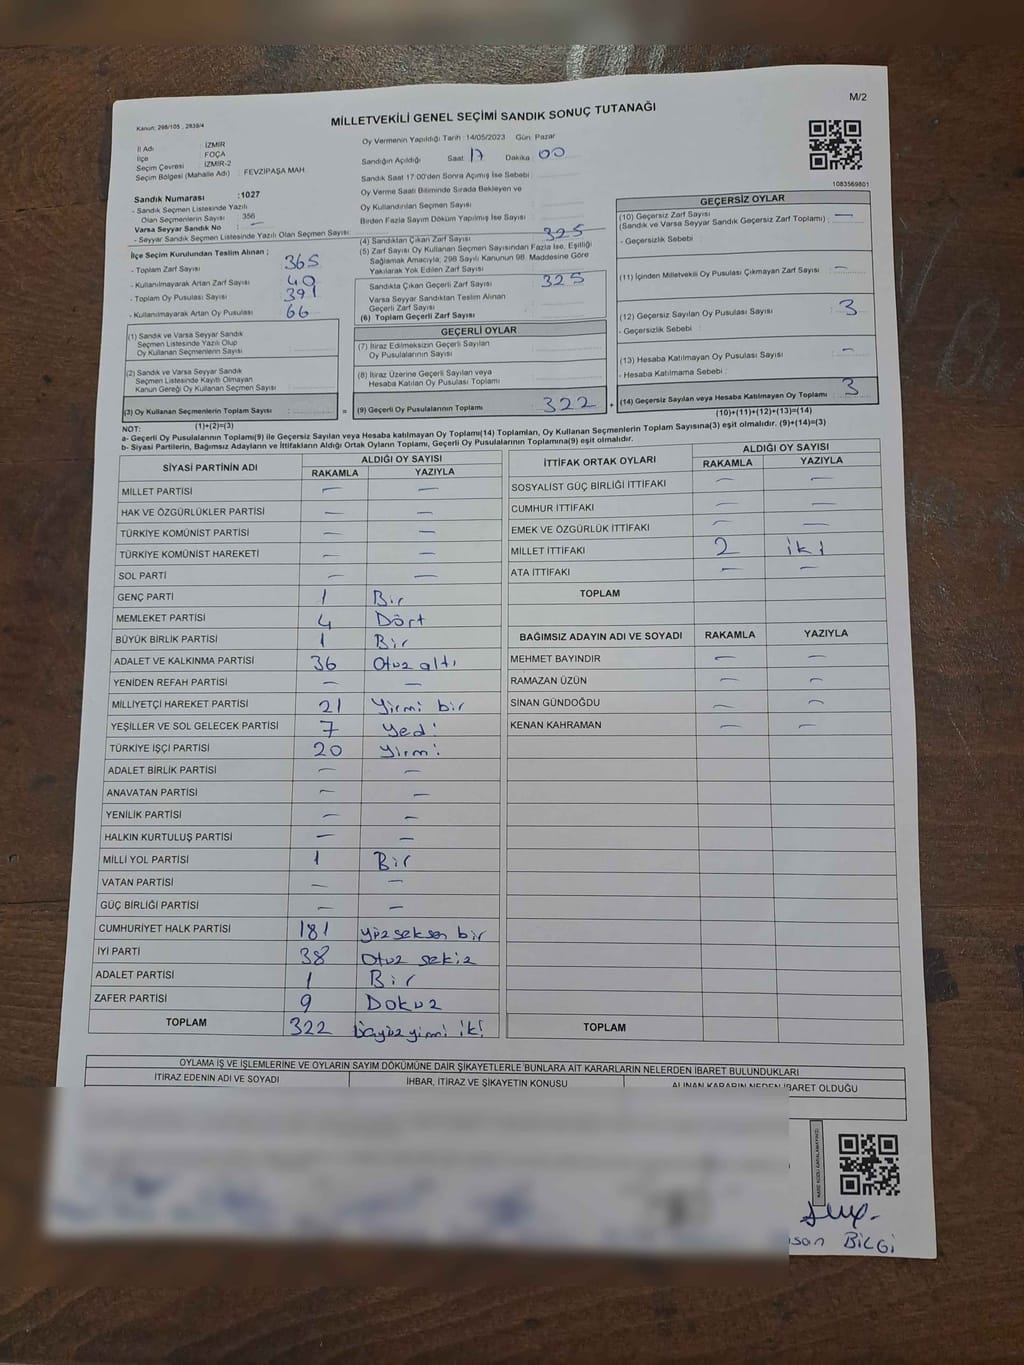 M/2
Kanun: 298/105 , 2839/4
MİLLETVEKİLİ GENEL SEÇİMİ SANDIK SONUÇ TUTANAĞI
İl Adı İZMİR
İlçe FOÇA
Seçim Çevresi İZMİR-2
Seçim Bölgesi (Mahalle Adı) : FEVZİPAŞA MAH.
Sandık Numarası :1027
- Sandık Seçmen Listesinde Yazılı
Olan Seçmenlerin Sayısı : 356
Varsa Seyyar Sandık No : —
- Seyyar Sandık Seçmen Listesinde Yazılı Olan Seçmen Sayısı:
İlçe Seçim Kurulundan Teslim Alınan ;
- Toplam Zarf Sayısı : 365
- Kullanılmayarak Artan Zarf Sayısı : 40
- Toplam Oy Pusulası Sayısı : 391
- Kullanılmayarak Artan Oy Pusulası : 66
(1) Sandık ve Varsa Seyyar Sandık
Seçmen Listesinde Yazılı Olup
Oy Kullanan Seçmenlerin Sayısı :
(2) Sandık ve Varsa Seyyar Sandık
Seçmen Listesinde Kayıtlı Olmayan
Kanun Gereği Oy Kullanan Seçmen Sayısı :
(3) Oy Kullanan Seçmenlerin Toplam Sayısı :
(1)+(2)=(3)
Oy Vermenin Yapıldığı Tarih : 14/05/2023 Gün: Pazar
Sandığın Açıldığı Saat 17 Dakika 00
Sandık Saat 17:00'den Sonra Açımış İse Sebebi :
Oy Verme Saati Bitiminde Sırada Bekleyen ve
Oy Kullandırılan Seçmen Sayısı :
Birden Fazla Sayım Döküm Yapılmış İse Sayısı :
(4) Sandıktan Çıkan Zarf Sayısı : 325
(5) Zarf Sayısı Oy Kullanan Seçmen Sayısından Fazla İse, Eşitliği
Sağlamak Amacıyla; 298 Sayılı Kanunun 98. Maddesine Göre
Yakılarak Yok Edilen Zarf Sayısı :
Sandıkta Çıkan Geçerli Zarf Sayısı : 325
Varsa Seyyar Sandıktan Teslim Alınan
Geçerli Zarf Sayısı :
(6) Toplam Geçerli Zarf Sayısı :
GEÇERLİ OYLAR
(7) İtiraz Edilmeksizin Geçerli Sayılan
Oy Pusulalarının Sayısı :
(8) İtiraz Üzerine Geçerli Sayılan veya
Hesaba Katılan Oy Pusulası Toplamı :
= (9) Geçerli Oy Pusulalarının Toplamı : 322
1083569801
GEÇERSİZ OYLAR
(10) Geçersiz Zarf Sayısı : —
(Sandık ve Varsa Seyyar Sandık Geçersiz Zarf Toplamı) ;
- Geçersizlik Sebebi :
(11) İçinden Milletvekili Oy Pusulası Çıkmayan Zarf Sayısı : —
(12) Geçersiz Sayılan Oy Pusulası Sayısı : 3
- Geçersizlik Sebebi :
(13) Hesaba Katılmayan Oy Pusulası Sayısı : —
- Hesaba Katılmama Sebebi :
+ (14) Geçersiz Sayılan veya Hesaba Katılmayan Oy Toplamı : 3
(10)+(11)+(12)+(13)=(14)
NOT:
a- Geçerli Oy Pusulalarının Toplamı(9) ile Geçersiz Sayılan veya Hesaba katılmayan Oy Toplamı(14) Toplamları, Oy Kullanan Seçmenlerin Toplam Sayısına(3) eşit olmalıdır. (9)+(14)=(3)
b- Siyasi Partilerin, Bağımsız Adayların ve İttifakların Aldığı Oyların Toplamı, Geçerli Oy Pusulalarının Toplamına(9) eşit olmalıdır.
SİYASİ PARTİNİN ADI ALDIĞI OY SAYISI
RAKAMLA YAZIYLA
MİLLET PARTİSİ — —
HAK VE ÖZGÜRLÜKLER PARTİSİ — —
TÜRKİYE KOMÜNİST PARTİSİ — —
TÜRKİYE KOMÜNİST HAREKETİ — —
SOL PARTİ — —
GENÇ PARTİ 1 Bir
MEMLEKET PARTİSİ 4 Dört
BÜYÜK BİRLİK PARTİSİ 1 Bir
ADALET VE KALKINMA PARTİSİ 36 Otuz altı
YENİDEN REFAH PARTİSİ — —
MİLLİYETÇİ HAREKET PARTİSİ 21 Yirmi bir
YEŞİLLER VE SOL GELECEK PARTİSİ 7 Yedi
TÜRKİYE İŞÇİ PARTİSİ 20 Yirmi
ADALET BİRLİK PARTİSİ — —
ANAVATAN PARTİSİ — —
YENİLİK PARTİSİ — —
HALKIN KURTULUŞ PARTİSİ — —
MİLLİ YOL PARTİSİ 1 Bir
VATAN PARTİSİ — —
GÜÇ BİRLİĞİ PARTİSİ — —
CUMHURİYET HALK PARTİSİ 181 yüzseksen bir
İYİ PARTİ 38 Otuz sekiz
ADALET PARTİSİ 1 Bir
ZAFER PARTİSİ 9 Dokuz
TOPLAM 322 üçyüzyirmi iki
İTTİFAK ORTAK OYLARI ALDIĞI OY SAYISI
RAKAMLA YAZIYLA
SOSYALİST GÜÇ BİRLİĞİ İTTİFAKI — —
CUMHUR İTTİFAKI — —
EMEK VE ÖZGÜRLÜK İTTİFAKI — —
MİLLET İTTİFAKI 2 iki
ATA İTTİFAKI — —
TOPLAM
BAĞIMSIZ ADAYIN ADI VE SOYADI RAKAMLA YAZIYLA
MEHMET BAYINDIR — —
RAMAZAN ÜZÜN — —
SİNAN GÜNDOĞDU — —
KENAN KAHRAMAN — —
TOPLAM
OYLAMA İŞ VE İŞLEMLERİNE VE OYLARIN SAYIM DÖKÜMÜNE DAİR ŞİKAYETLERLE BUNLARA AİT KARARLARIN NELERDEN İBARET BULUNDUKLARI
İTİRAZ EDENİN ADI VE SOYADI İHBAR, İTİRAZ VE ŞİKAYETİN KONUSU ALINAN KARARIN NEDEN İBARET OLDUĞU
BİLGİ